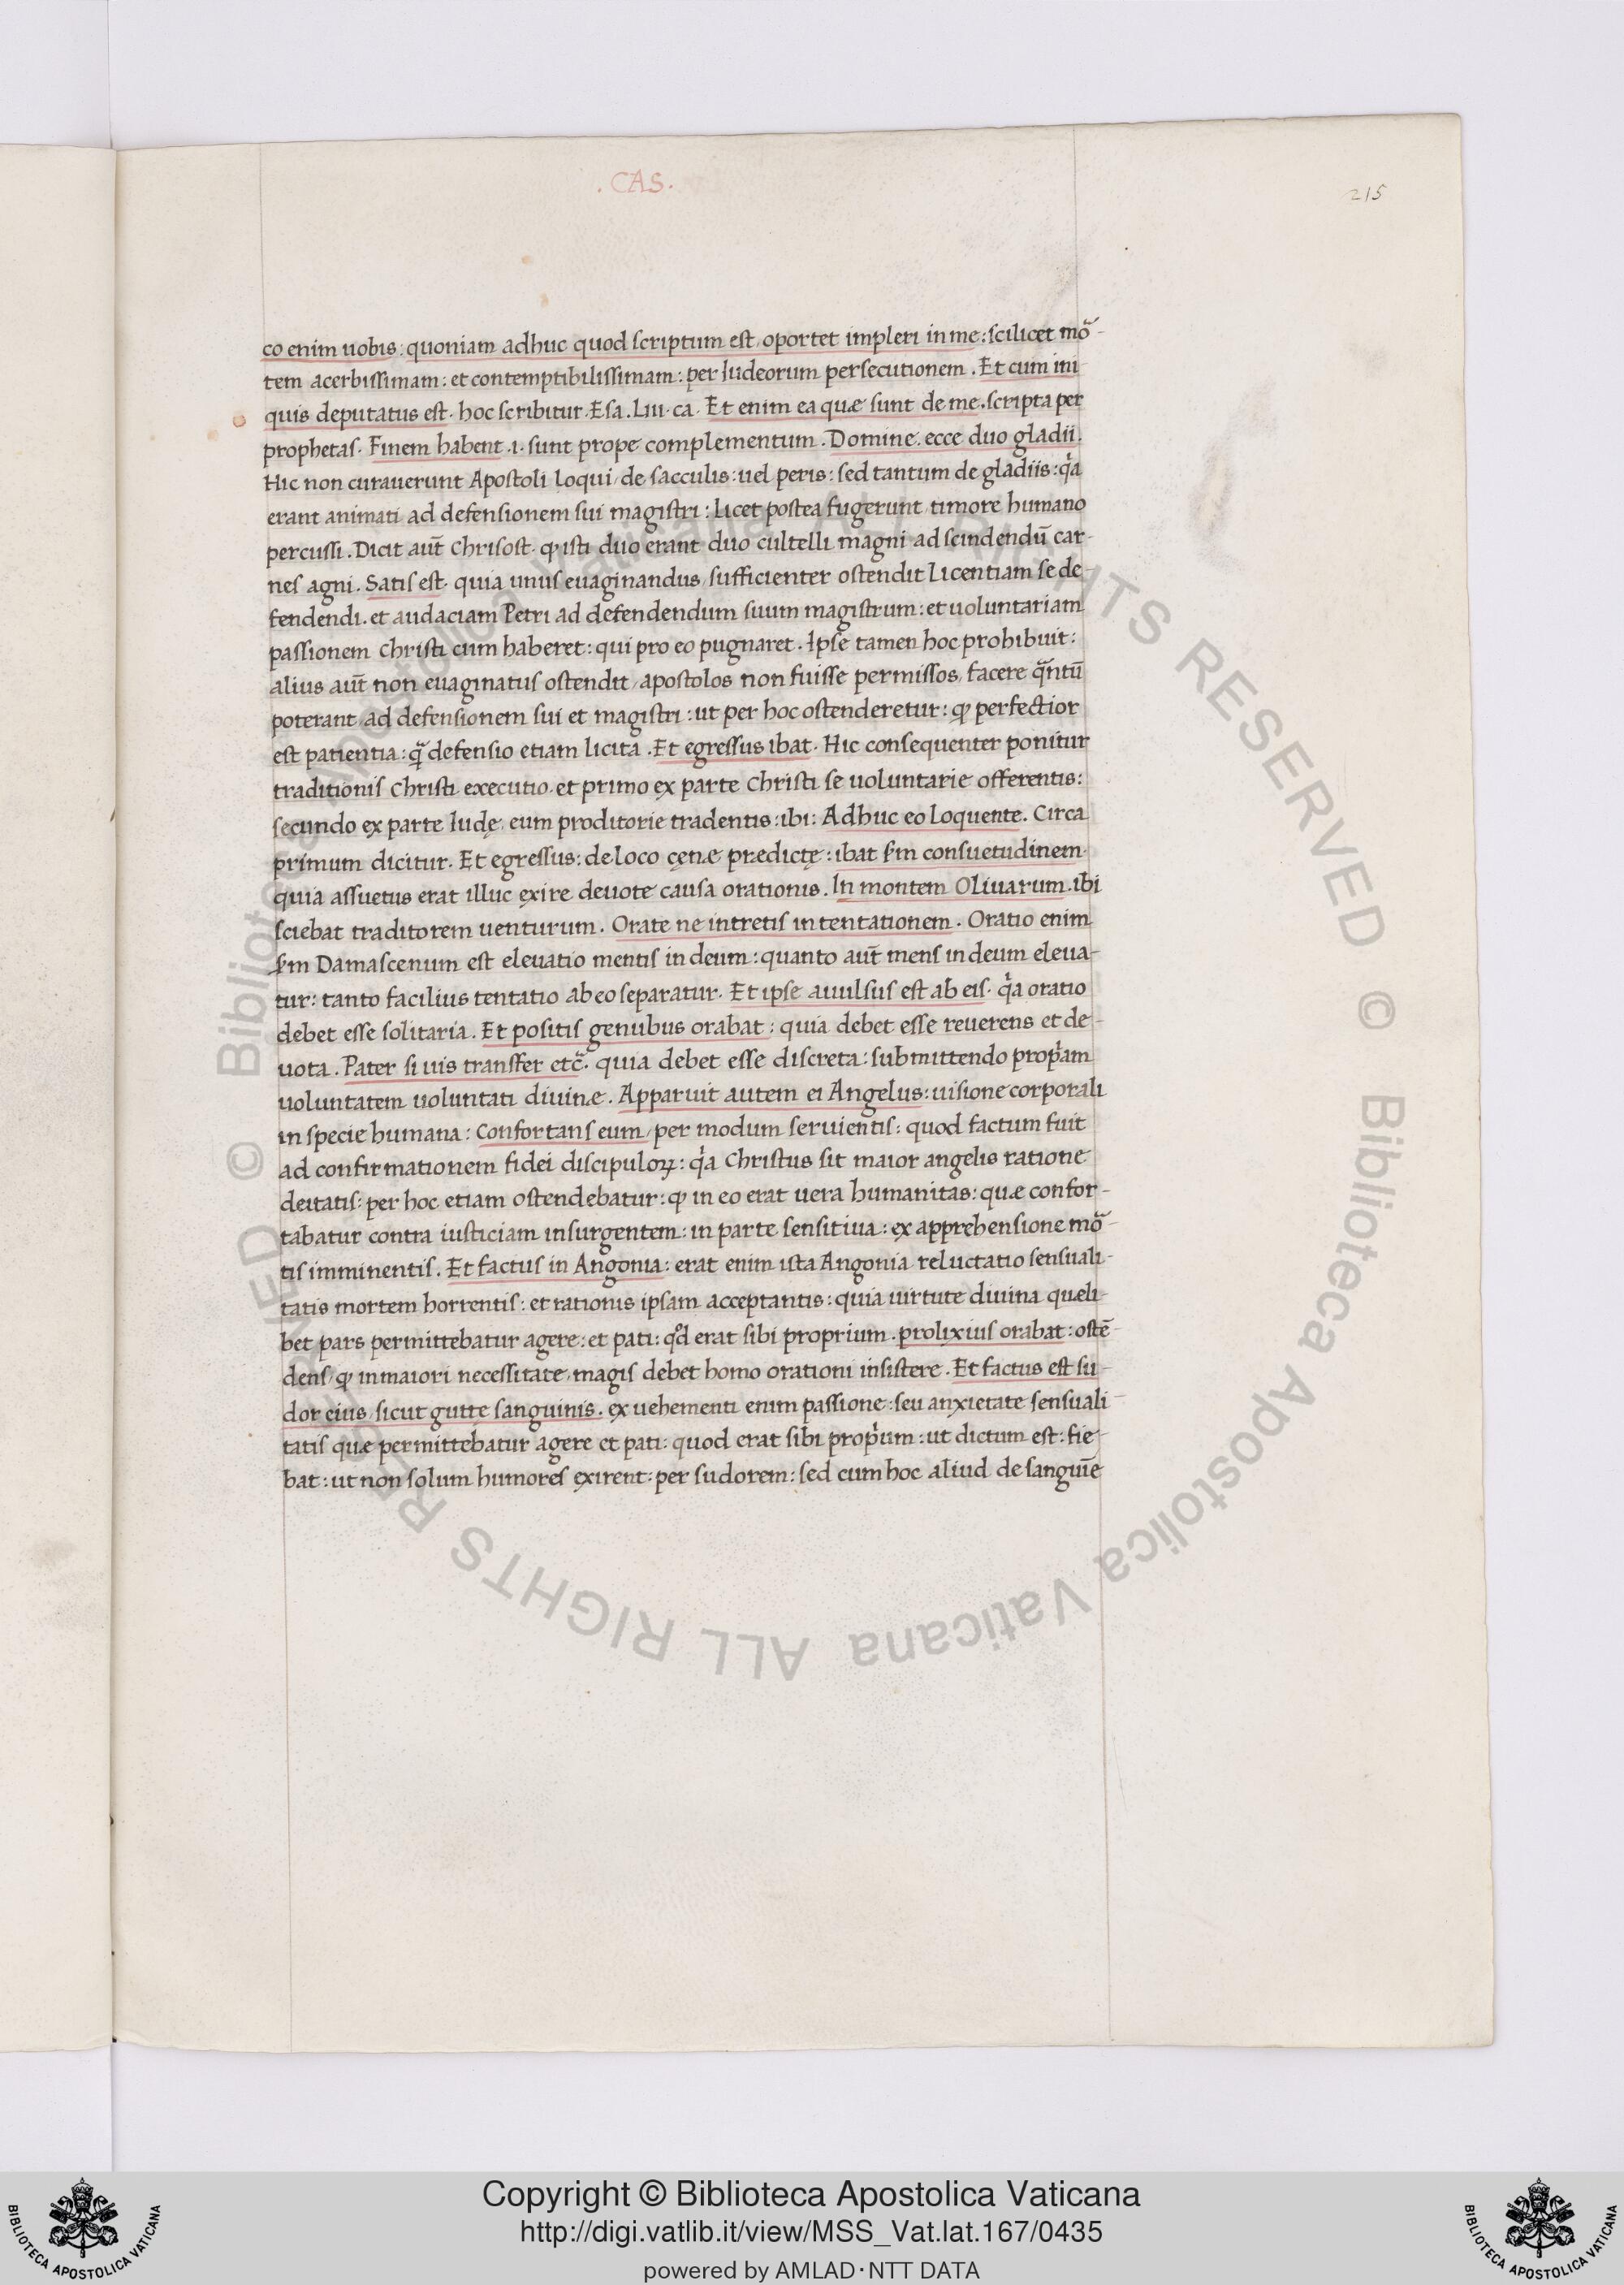 .CAS.
215
co enim uobis: quoniam adhuc quod scriptum est, oportet impleri in me: scilicet mõ-
tem acerbissimam: et contemptibilissimam: per Iudeorum persecutionem. Et cum ini
quis deputatus est. hoc scribitur. Esa. Liii. ca. Et enim ea quæ sunt de me. scripta per
prophetas. Finem habent .i. sunt prope complementum. Domine. ecce duo gladii.
Hic non curauerunt Apostoli loqui, de sacculis: uel peris: sed tantum de gladiis: qͥa
erant animati ad defensionem sui magistri: Licet postea fugerunt timore humano
percussi. Dicit aut̃ Chrisost. ꝙ isti duo erant duo cultelli magni ad scindendũ car-
nes agni. Satis est. quia unus euaginandus, sufficienter ostendit licentiam se de-
fendendi. et audaciam Petri ad defendendum suum magistrum: et uoluntariam
passionem Christi cum haberet: qui pro eo pugnaret. Ipse tamen hoc prohibuit:
alius aut̃ non euaginatus ostendit, apostolos non fuisse permissos, facere qᷓntũ
poterant, ad defensionem sui et magistri: ut per hoc ostenderetur: ꝙ perfectior
est patientia: qᷓ defensio etiam licita. Et egressus ibat. Hic consequenter ponitur
traditionis Christi executio. et primo ex parte Christi se uoluntarie offerentis:
secundo ex parte Iudę, eum proditorie tradentis: ibi: Adhuc eo loquente. Circa
primum dicitur. Et egressus: de loco cęnæ prædictę: ibat ẜm consuetudinem.
quia assuetus erat illuc exire deuote causa orationis. In montem Oliuarum. ibi
sciebat traditorem uenturum. Orate ne intretis in tentationem. Oratio enim
ẜm Damascenum est eleuatio mentis in deum: quanto aut̃ mens in deum eleua-
tur: tanto facilius tentatio ab eo separatur. Et ipse auulsus est ab eis. qͥa oratio
debet esse solitaria. Et positis genubus orabat: quia debet esse reuerens et de-
uota. Pater si uis transfer etc̃. quia debet esse discreta: submittendo propͥam
uoluntatem uoluntati diuinæ. Apparuit autem ei Angelus: uisione corporali
in specie humana: Confortans eum, per modum seruientis: quod factum fuit
ad confirmationem fidei discipuloꝝ: qͥa Christus sit maior angelis ratione
deitatis: per hoc etiam ostendebatur: ꝙ in eo erat uera humanitas: quæ confor-
tabatur contra iusticiam insurgentem: in parte sensitiua: ex apprehensione mõ-
tis imminentis. Et factus in Angonia: erat enim ista Angonia reluctatio sensuali-
tatis mortem horrentis: et rationis ipsam acceptantis: quia uirtute diuina quæli-
bet pars permittebatur agere: et pati: qͦd erat sibi proprium. prolixius orabat: ostẽ-
dens, ꝙ in maiori necessitate, magis debet homo orationi insistere. Et factus est su-
dor eius, sicut guttę sanguinis. ex uehementi enim passione: seu anxietate sensuali-
tatis quæ permittebatur agere et pati: quod erat sibi propͥum: ut dictum est: fie-
bat: ut non solum humores exirent: per sudorem: sed cum hoc aliud de sanguĩe
© Biblioteca Apostolica Vaticana ALL RIGHTS RESERVED © Biblioteca Apostolica Vaticana ALL RIGHTS RESERVED
Copyright © Biblioteca Apostolica Vaticana
http://digi.vatlib.it/view/MSS_Vat.lat.167/0435
powered by AMLAD·NTT DATA
BIBLIOTECA APOSTOLICA VATICANA
BIBLIOTECA APOSTOLICA VATICANA